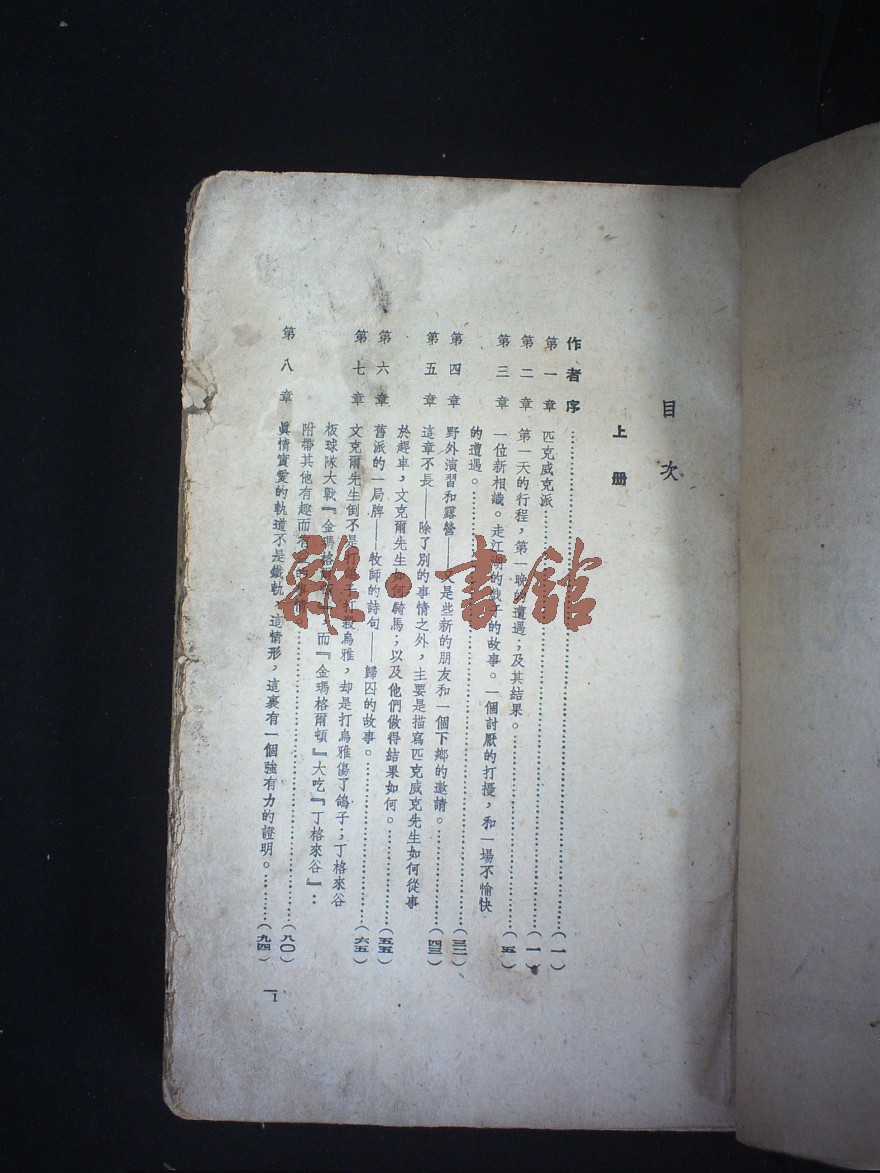 目次
上册
作者序……(一)
第一章 匹克威克派……(一)
第二章 第一天的行程,第一晚的遭遇;及其結果。……(五)
第三章 一位新相識。走江湖的戲子的故事。一個討厭的打擾,和一場不愉快
的遭遇。……(三二)
第四章 野外演習和露營——又是些新的朋友和一個下鄉的邀請。……(四三)
第五章 這章不長——除了別的事情之外,主要是描寫匹克威克先生如何從事
於趕車,文克爾先生如何騎馬;以及他們做得結果如何。……(五五)
第六章 舊派的一局牌——牧師的詩句——歸囚的故事。……(六五)
第七章 文克爾先生倒不是打鴿子打殺烏鴉,却是打烏鴉傷了鴿子;丁格來谷
板球隊大戰『金瑪格爾頓』而『金瑪格爾頓』大吃『丁格來谷』:
附帶其他有趣而 的事情……(八〇)
第八章 眞情實愛的軌道不是鐵軌,這情形,這裏有一個強有力的證明。……(九四)
1
雜·書館